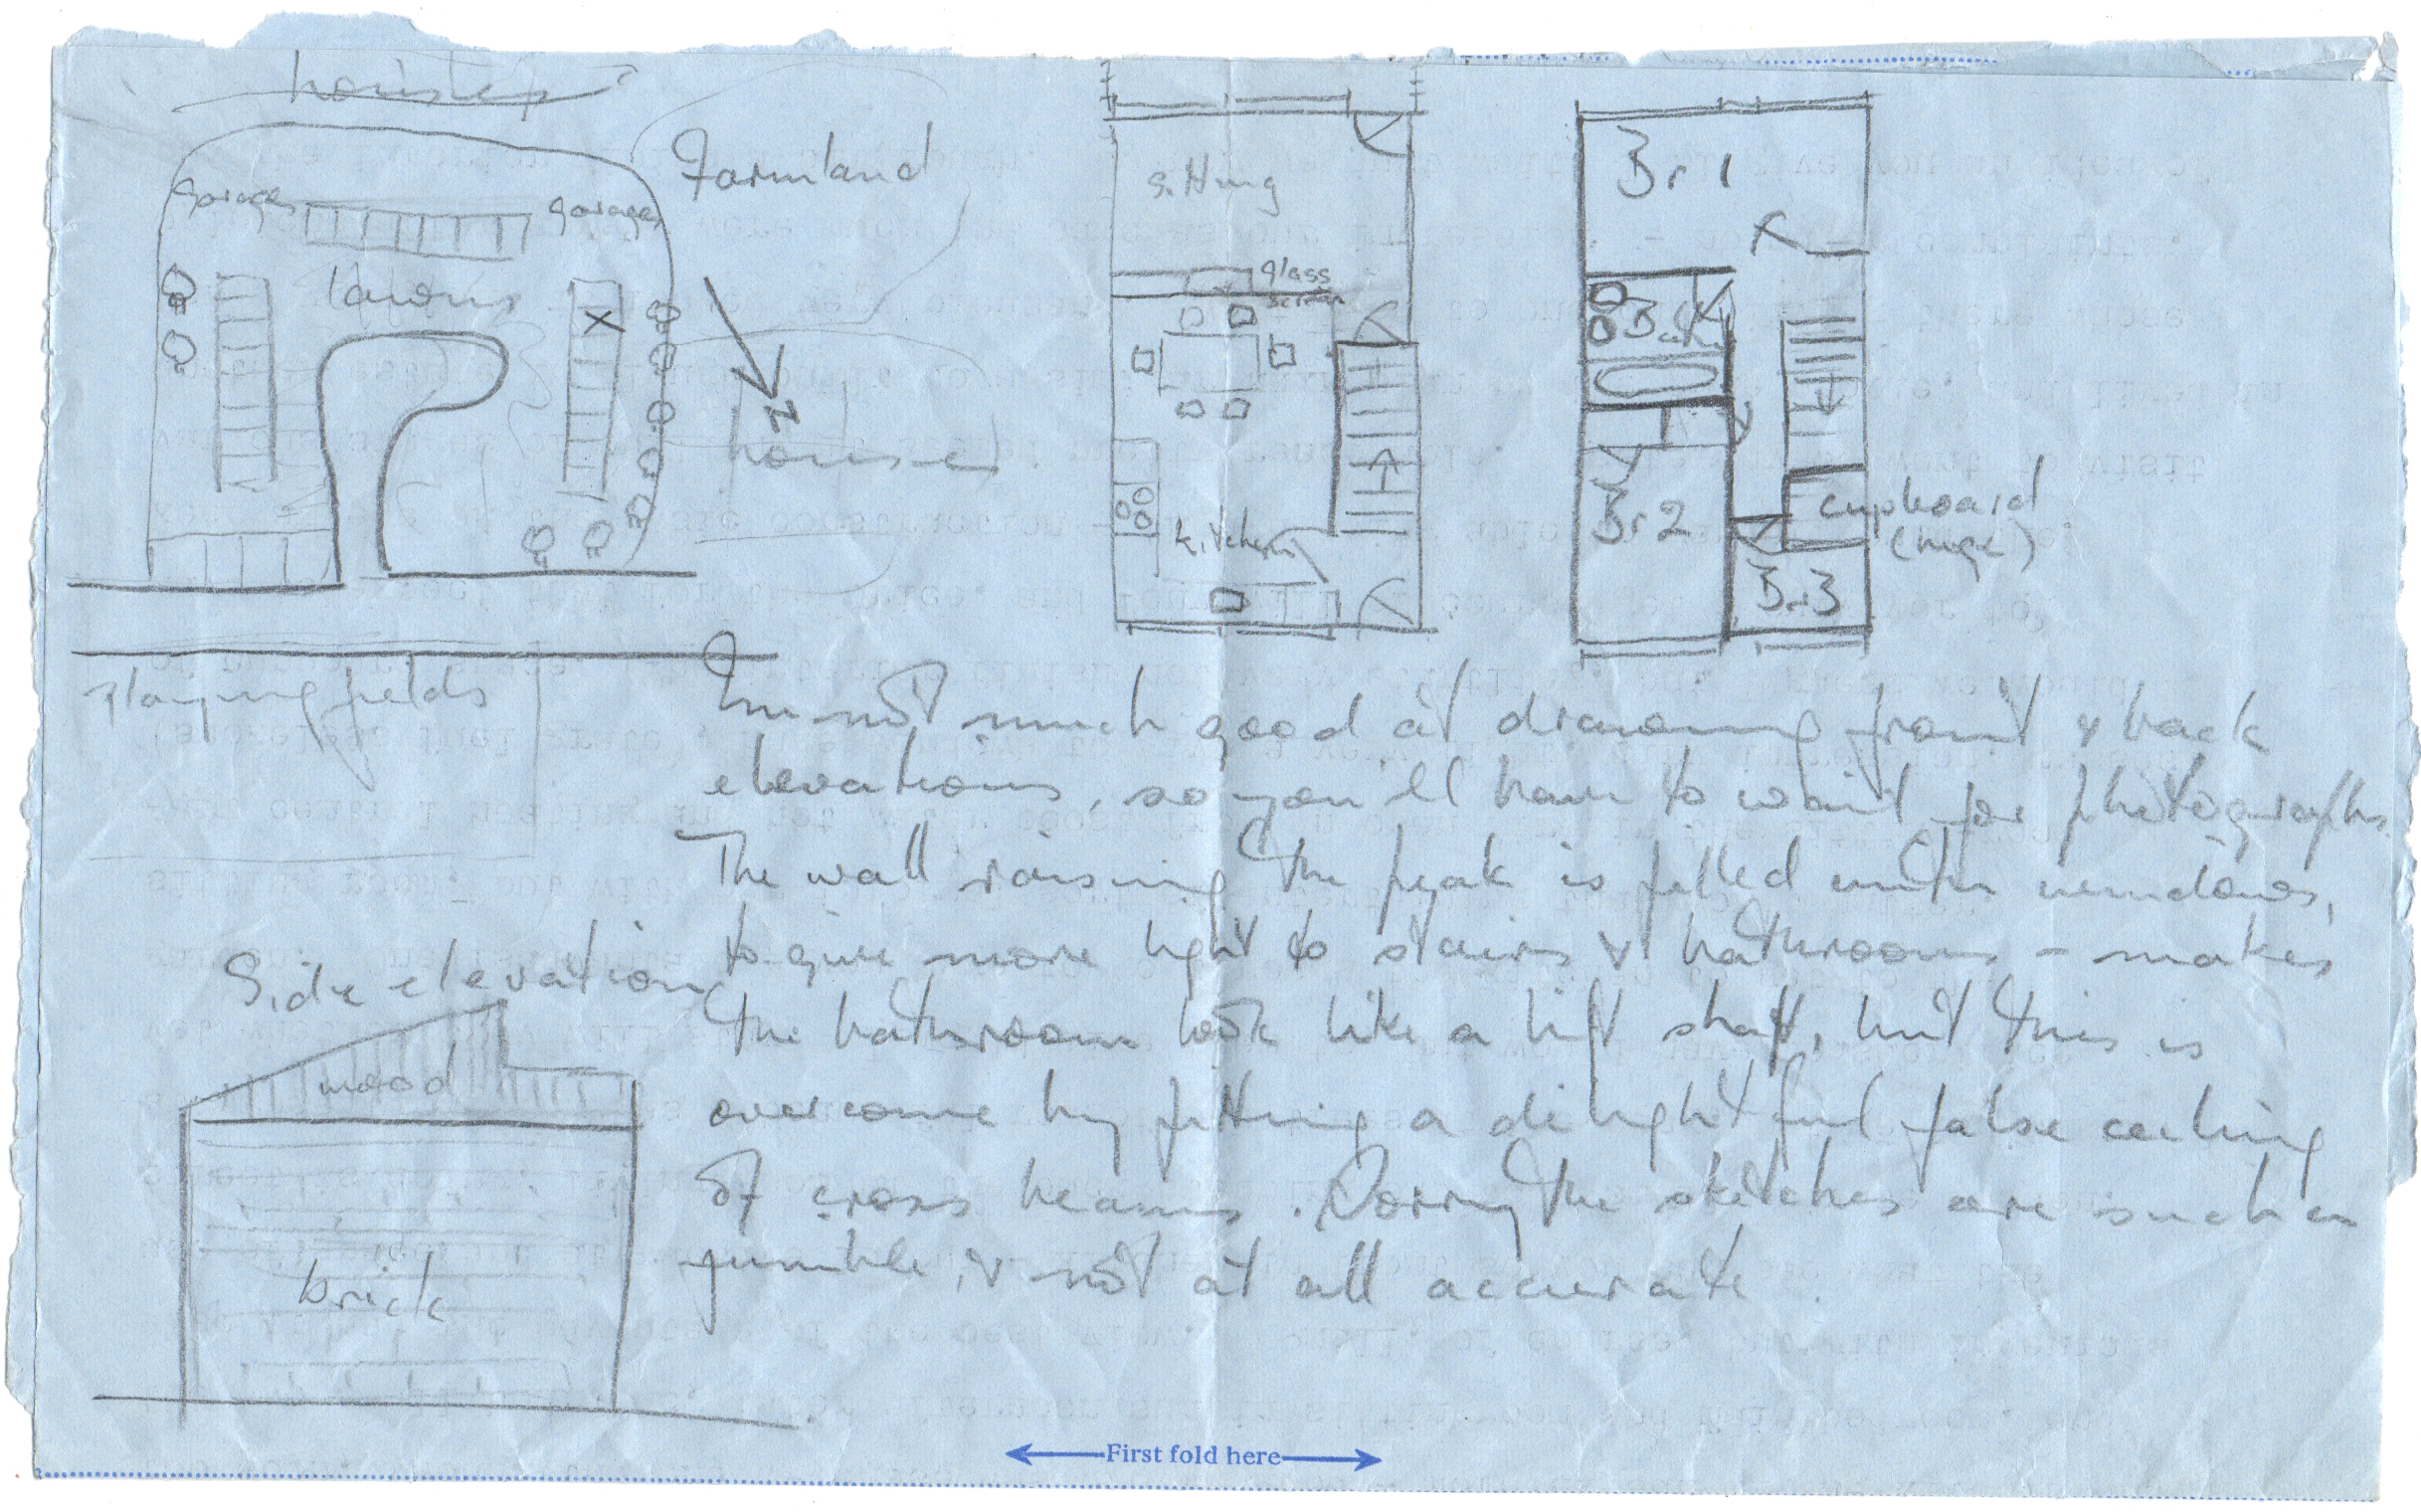 houses
Farmland
Garages
garages
lawns
X
N
houses
Playing fields
Sitting
glass
screen
kitchen
Br 1
Bath
Br 2
cupboard
(huge)
Br 3
I'm not much good at drawing front & back
elevations, so you'll have to wait for photographs.
The wall raising the peak is filled with windows,
to give more light to stairs & bathroom – makes
the bathroom look like a lift shaft, but this is
overcome by fitting a delightful false ceiling
of cross beams. Sorry the sketches are such a
jumble, & not at all accurate.
Side elevation
wood
brick
First fold here